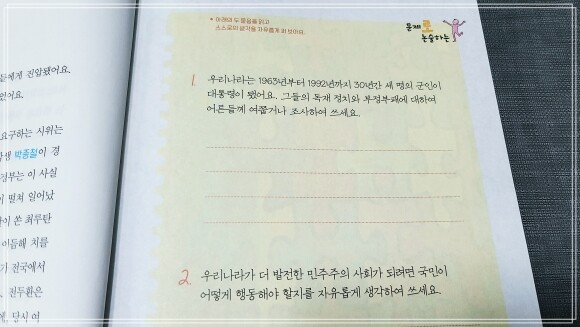 들에게 진압됐어요.
요구하는 시위는
박종철이 경
정부는 이 사실
떨쳐 일어났
이 쏜 최루탄
이듬해 치를
가 전국에서
전두환은
당시 여
* 아래의 두 물음을 읽고
스스로의 생각을 자유롭게 써 보아요.
문제로
논술하는
1. 우리나라는 1963년부터 1992년까지 30년간 세 명의 군인이
대통령이 됐어요. 그들의 독재 정치와 부정부패에 대하여
어른들께 여쭙거나 조사하여 쓰세요.
2. 우리나라가 더 발전한 민주주의 사회가 되려면 국민이
어떻게 행동해야 할지를 자유롭게 생각하여 쓰세요.